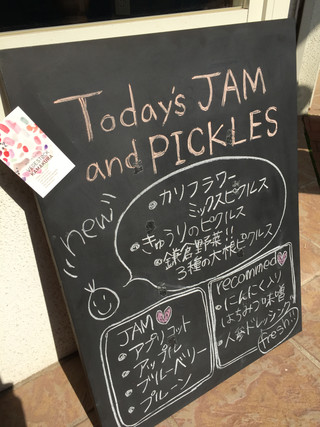 Today's JAM
and PICKLES
new
・カリフラワー
ミックスピクルス
・きゅうりのピクルス
・鎌倉野菜!!
3種の大根ピクルス
JAM
・アプリコット
・アップル
・ブルーベリー
・プルーン
recommend
・にんにく入り
はちみつ味噌
・人参ドレッシング
fresh!!